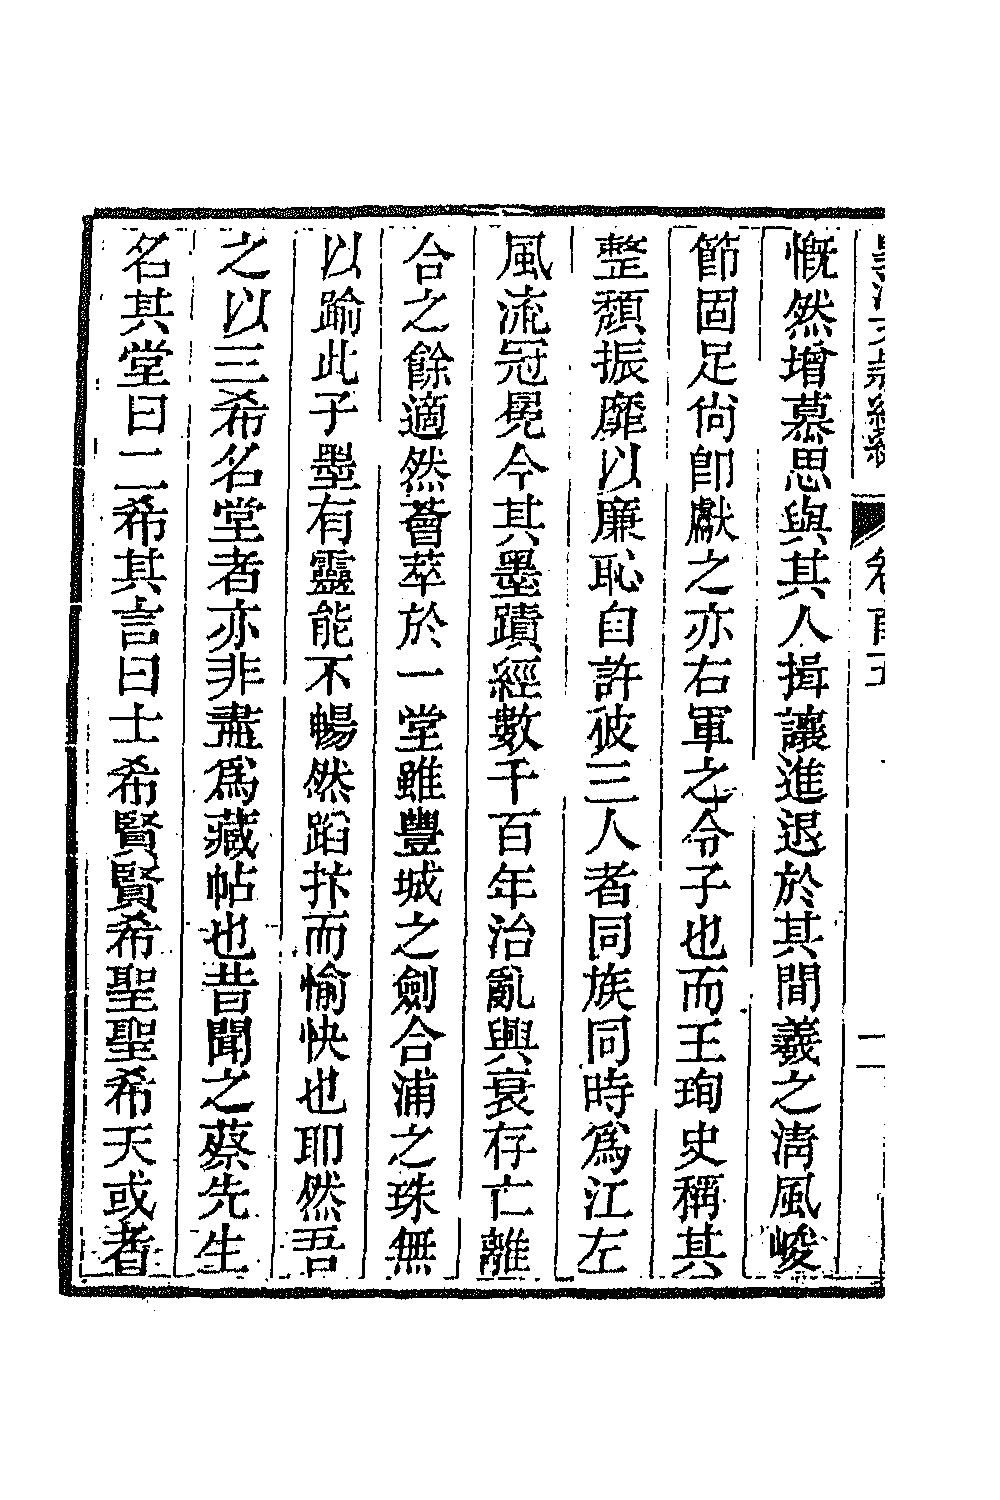 慨然增慕思與其人揖讓進退於其間羲之淸風峻
節固足尙卽獻之亦右軍之令子也而王珣史稱其
整頽振靡以廉恥自許彼三人者同族同時爲江左
風流冠冕今其墨蹟經數千百年治亂興衰存亡離
合之餘適然薈萃於一堂雖豐城之劍合浦之珠無
以踰此子墨有靈能不暢然蹈抃而愉快也耶然吾
之以三希名堂者亦非盡爲藏帖也昔聞之蔡先生
名其堂曰二希其言曰士希賢賢希聖聖希天或者